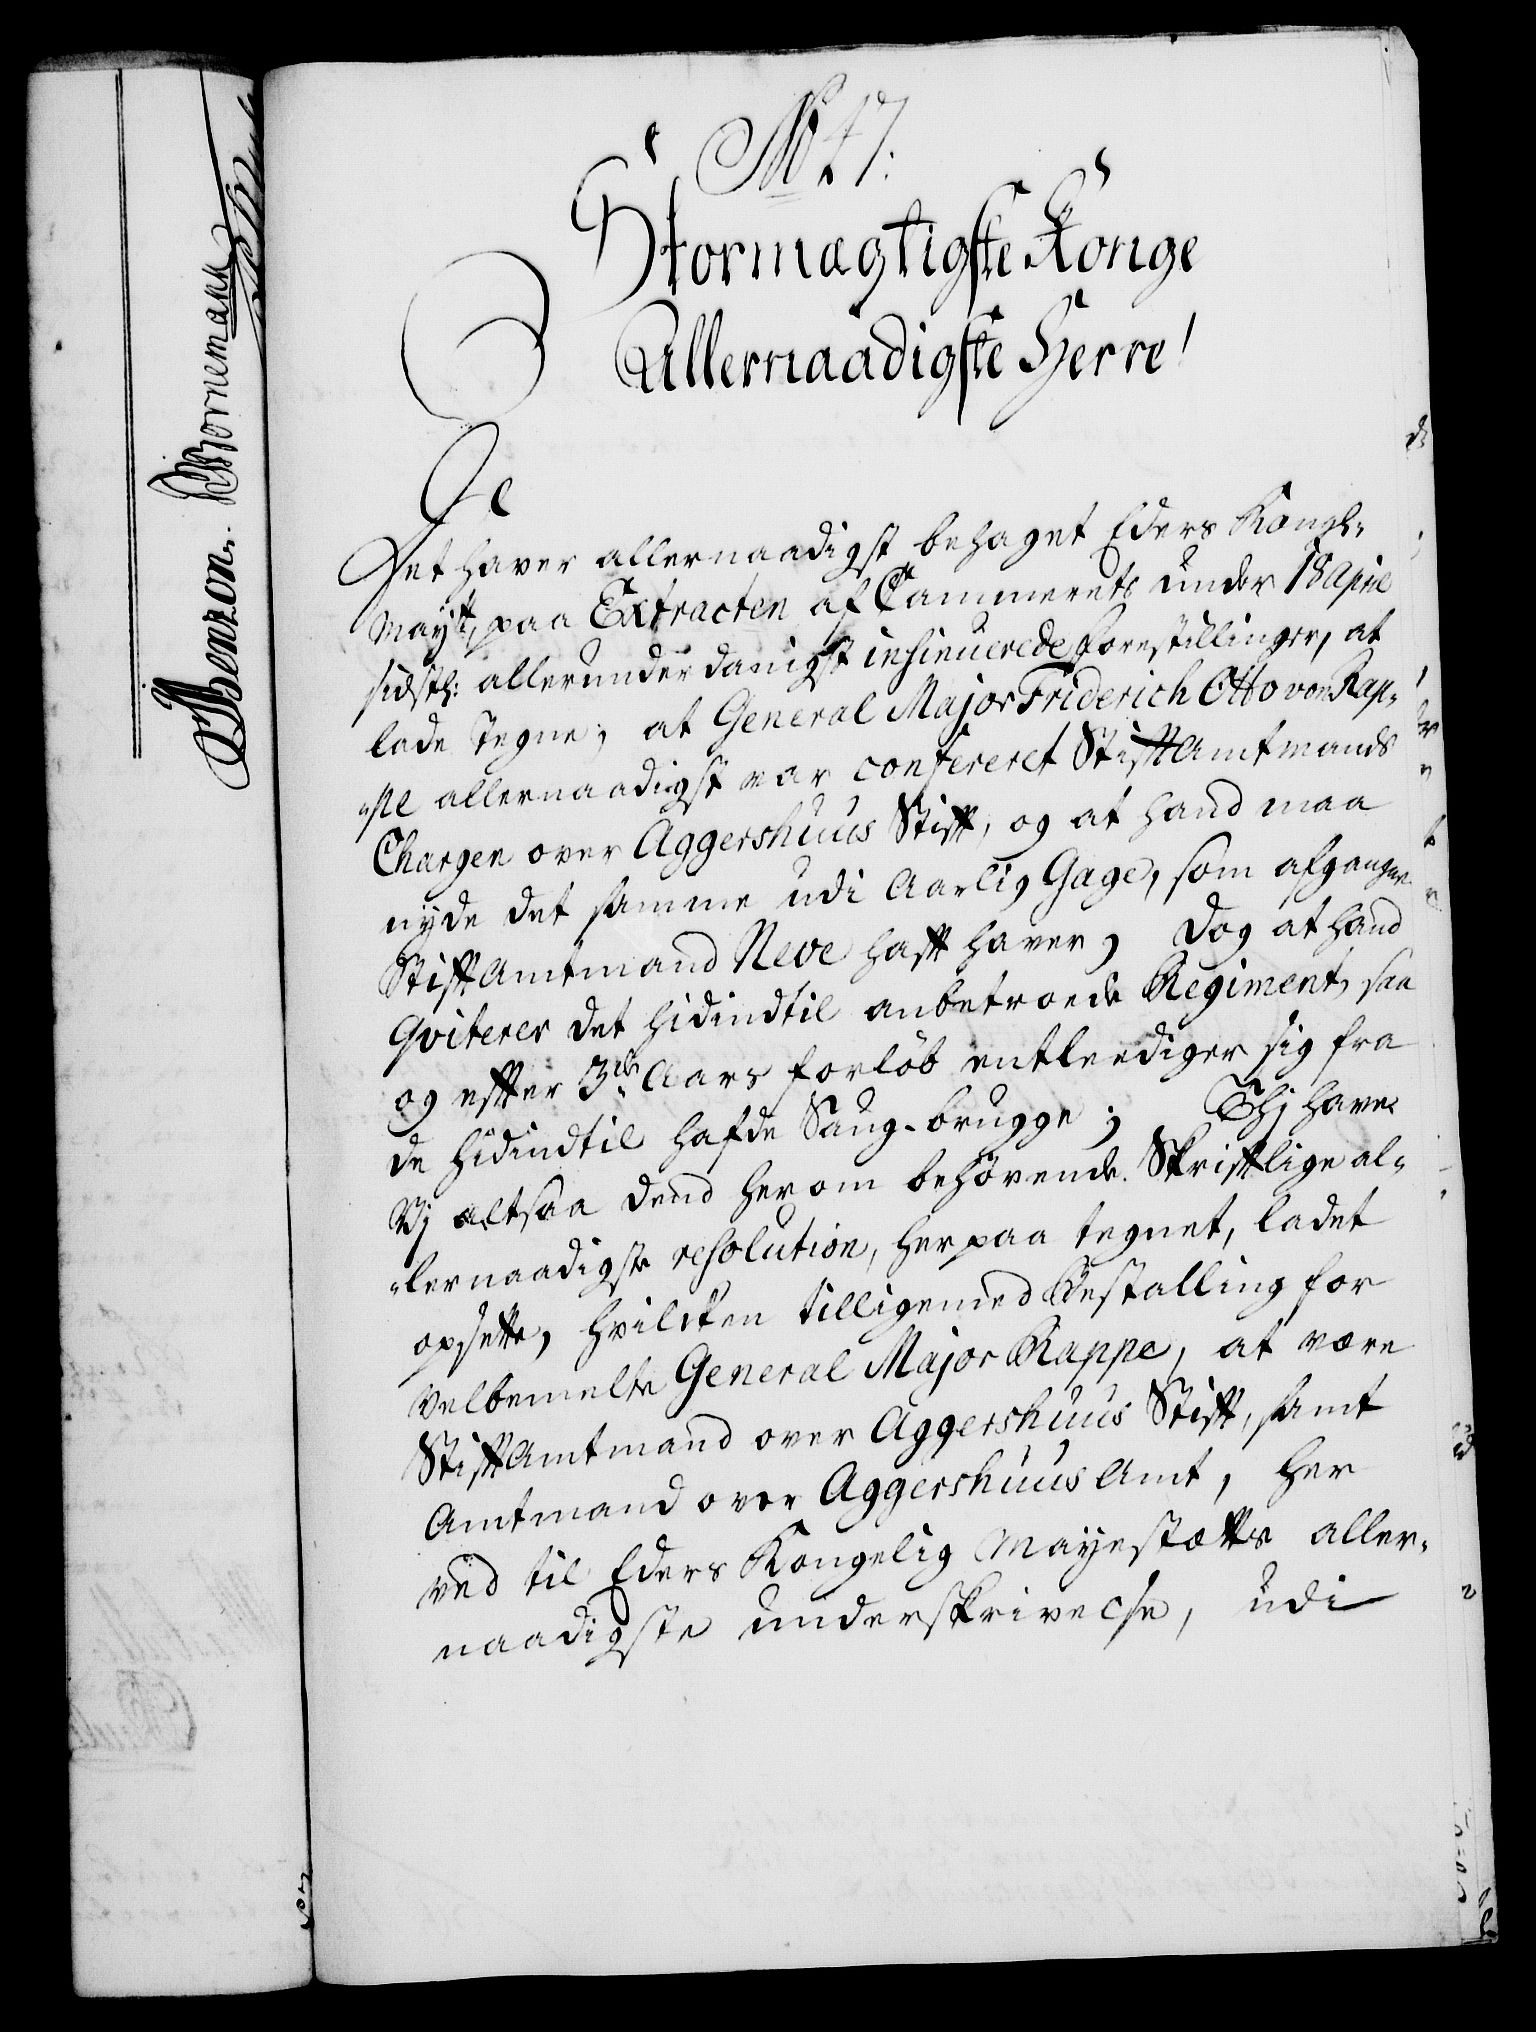 No 47.
Stormægtigste Konge
Allernaadigste Herre!
Det haver allernaadigst behaget Eders Kongl.
Mayt, paa Extracten af Cammerets under 18 April
sidstl: allerunderdanigst insinuerede forestillinger, at
lade tegne; at General Major Friderich Otto von Rap-
pe allernaadigst var confereret StiftAmtmands
Chargen over Aggershuus Stift, og at hand maa
nyde det samme udi Aarlig Gage, som afgangne
StiftAmtmand Neve hafft haver; dog at hand
qviterer det hidindtil anbetroede Regiment, saa
og effter 3de Aars forløb entleediger sig fra
de hidindtil hafde Saug-brugge; Thj have
Vj altsaa dend herom behøvende Skrifftlige al-
lernaadigste resolution, herpaa tegnet, ladet
opsette, hvilcken tilligemed Bestalling for
velbemelte General Major Rappe, at være
StiftAmtmand over Aggershuus Stift, samt
Amtmand over Aggershuus Amt, her
ved til Eders Kongelig Mayestætts aller-
naadigste underskrivelse, udi
Benzon. Bornemann